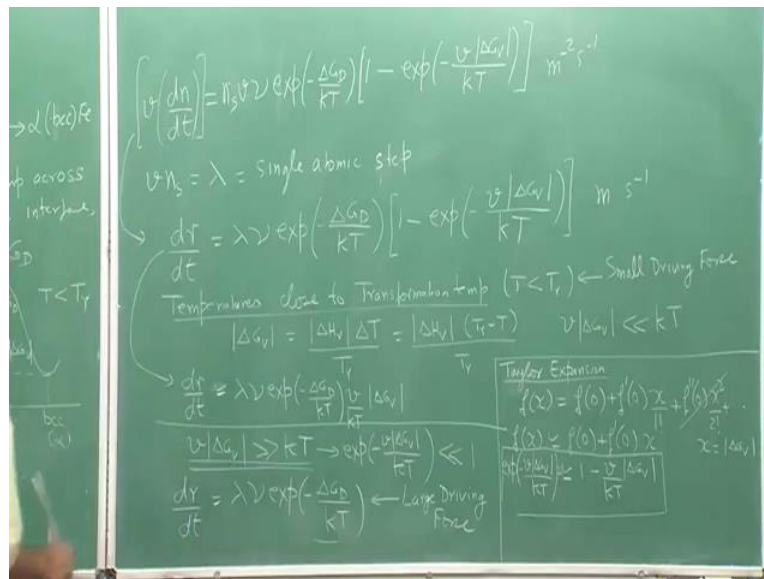 → α (bcc) Fe
across
interface,
T < Tγ
bcc
(α)
[v(dn/dt)] = nₛvν exp(-ΔG_D/kT)[1 - exp(-v|ΔGᵥ|/kT)] m⁻²s⁻¹
vnₛ = λ = Single atomic step
dr/dt = λν exp(-ΔG_D/kT)[1 - exp(-v|ΔGᵥ|/kT)] m s⁻¹
Temperatures close to Transformation temp (T < Tγ) ← Small Driving Force
|ΔGᵥ| = |ΔHᵥ|ΔT/Tγ = |ΔHᵥ|(Tγ-T)/Tγ v|ΔGᵥ| ≪ kT
dr/dt = λν exp(-ΔG_D/kT) v/kT |ΔGᵥ|
v|ΔGᵥ| ≫ kT → exp(-v|ΔGᵥ|/kT) ≪ 1
dr/dt = λν exp(-ΔG_D/kT) ← Large Driving Force
Taylor Expansion
f(x) = f(0) + f'(0) x/1! + f''(0) x²/2! + ..
f(x) ≃ f(0) + f'(0) x
x = |ΔGᵥ|
exp(-v|ΔGᵥ|/kT) ≃ 1 - v/kT |ΔGᵥ|